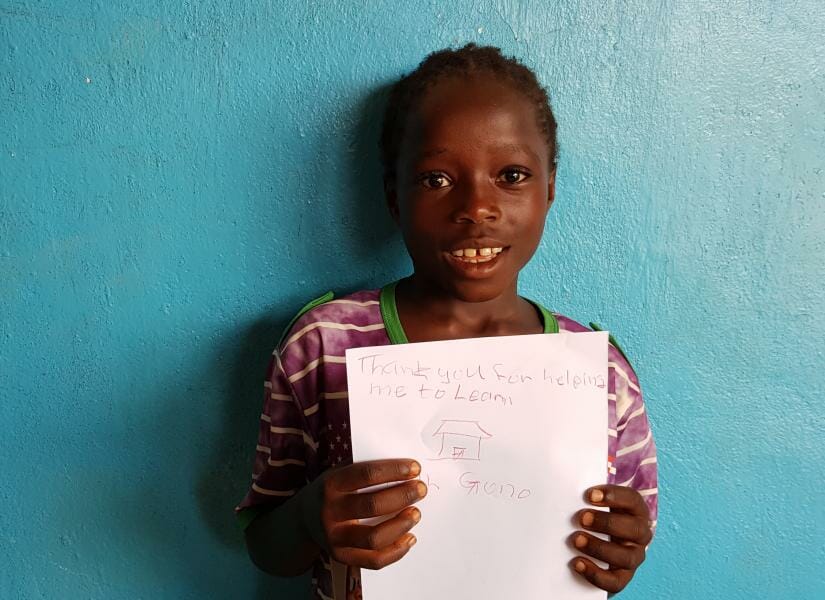 Thank you for helping
me to Learn